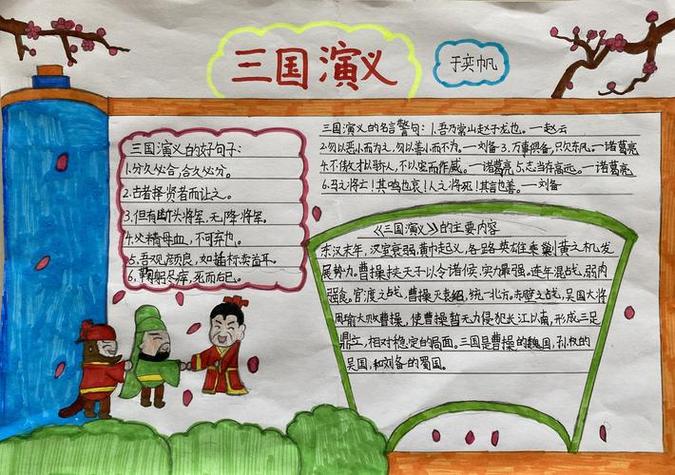 三国演义
于奕帆
三国演义的好句子:
1.分久必合,合久必分。
2.古者择贤者而让之。
3.但有断头将军,无降将军。
4.父精母血,不可弃也。
5.吾观颜良,如插标卖首耳。
6.鞠躬尽瘁,死而后已。
三国演义的名言警句:1.吾乃常山赵子龙也。一赵云
2.勿以恶小而为之,勿以善小而不为。一刘备 3.万事俱备,只欠东风一诸葛亮
4.不傲才以骄人,不以宠而作威。一诸葛亮 5.志当存高远。一诸葛亮
6.鸟之将亡!其鸣也哀!人之将死!其言也善。一刘备
《三国演义》的主要内容
东汉末年,汉室衰弱,黄巾起义,各路英雄乘剿黄之机,发
展势力。曹操挟天子以令诸侯,实力最强。连年混战,弱肉
强食。官渡之战,曹操灭袁绍,统一北方。赤壁之战,吴国大将
周瑜大败曹操,使曹操暂无力侵犯长江以南,形成三足
鼎立,相对稳定的局面。三国是曹操的魏国,孙权的
吴国,和刘备的蜀国。